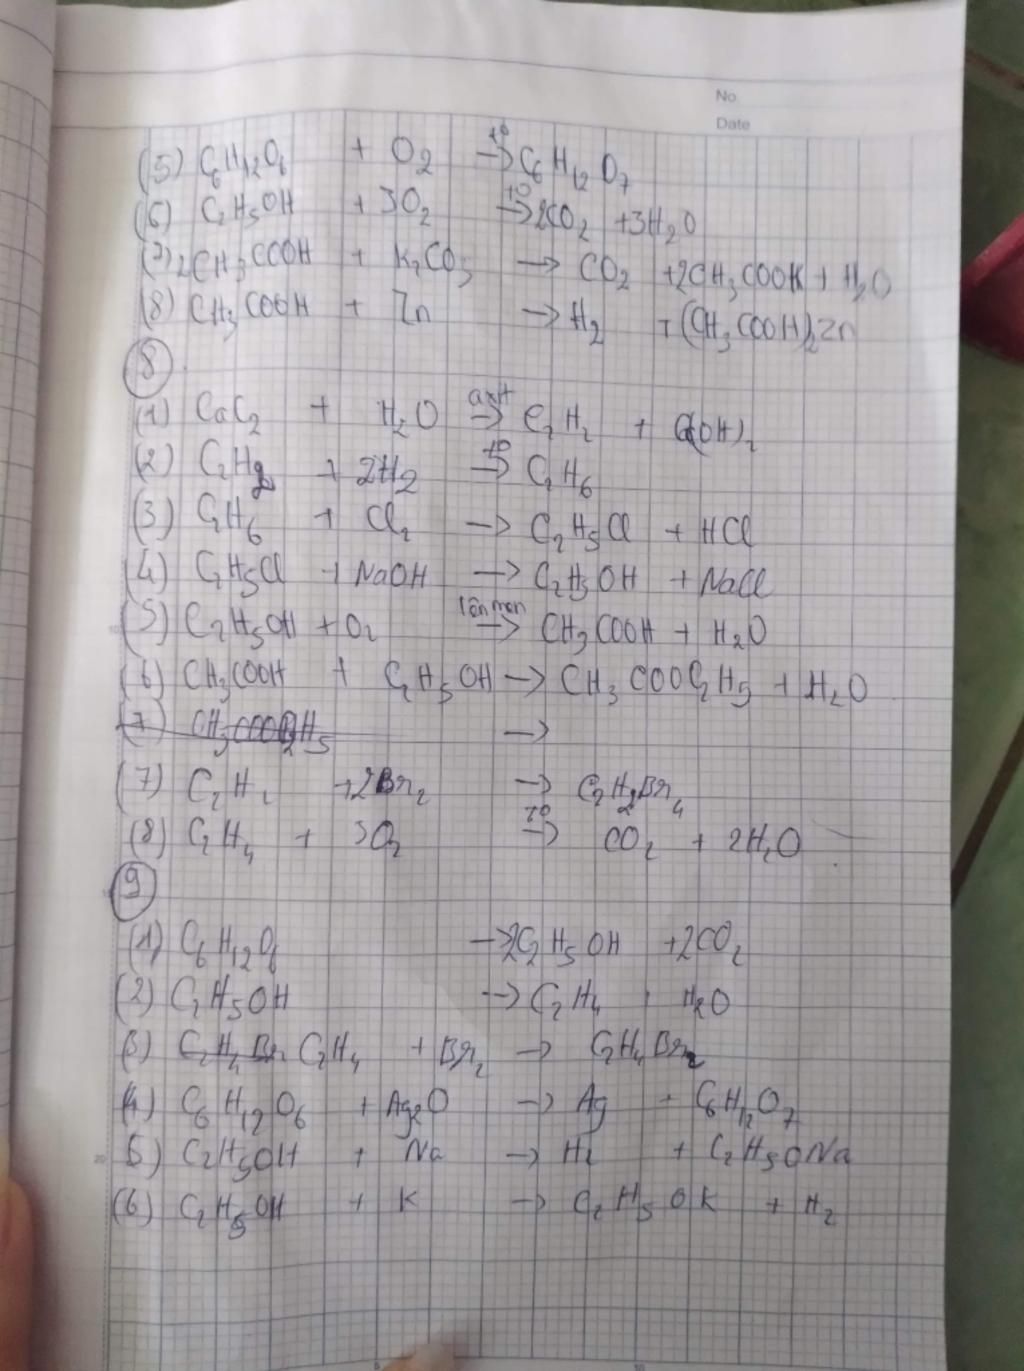 No
Date
(5) C6H12O6 + O2 t°→ C6H12O7
(6) C2H5OH + 3O2 t°→ 2CO2 + 3H2O
(7) 2CH3COOH + K2CO3 → CO2 + 2CH3COOK + H2O
(8) CH3COOH + Zn → H2 + (CH3COOH)2Zn
(8)
(1) CaC2 + H2O axit→ C2H2 + Ca(OH)2
(2) C2H2 + 2H2 t°→ C2H6
(3) C2H6 + Cl2 → C2H5Cl + HCl
(4) C2H5Cl + NaOH → C2H5OH + NaCl
(5) C2H5OH + O2 lên men→ CH3COOH + H2O
(6) CH3COOH + C2H5OH → CH3COOC2H5 + H2O
(7) CH3COOC2H5 →
(7) C2H2 + 2Br2 → C2H2Br4
(8) C2H4 + 3O2 t°→ CO2 + 2H2O
(9)
(1) C6H12O6 → 2C2H5OH + 2CO2
(2) C2H5OH → C2H4 + H2O
(3) C2H4 Br C2H4 + Br2 → C2H4Br2
(4) C6H12O6 + Ag2O → Ag + C6H12O7
5) C2H5OH + Na → H2 + C2H5ONa
(6) C2H5OH + K → C2H5OK + H2